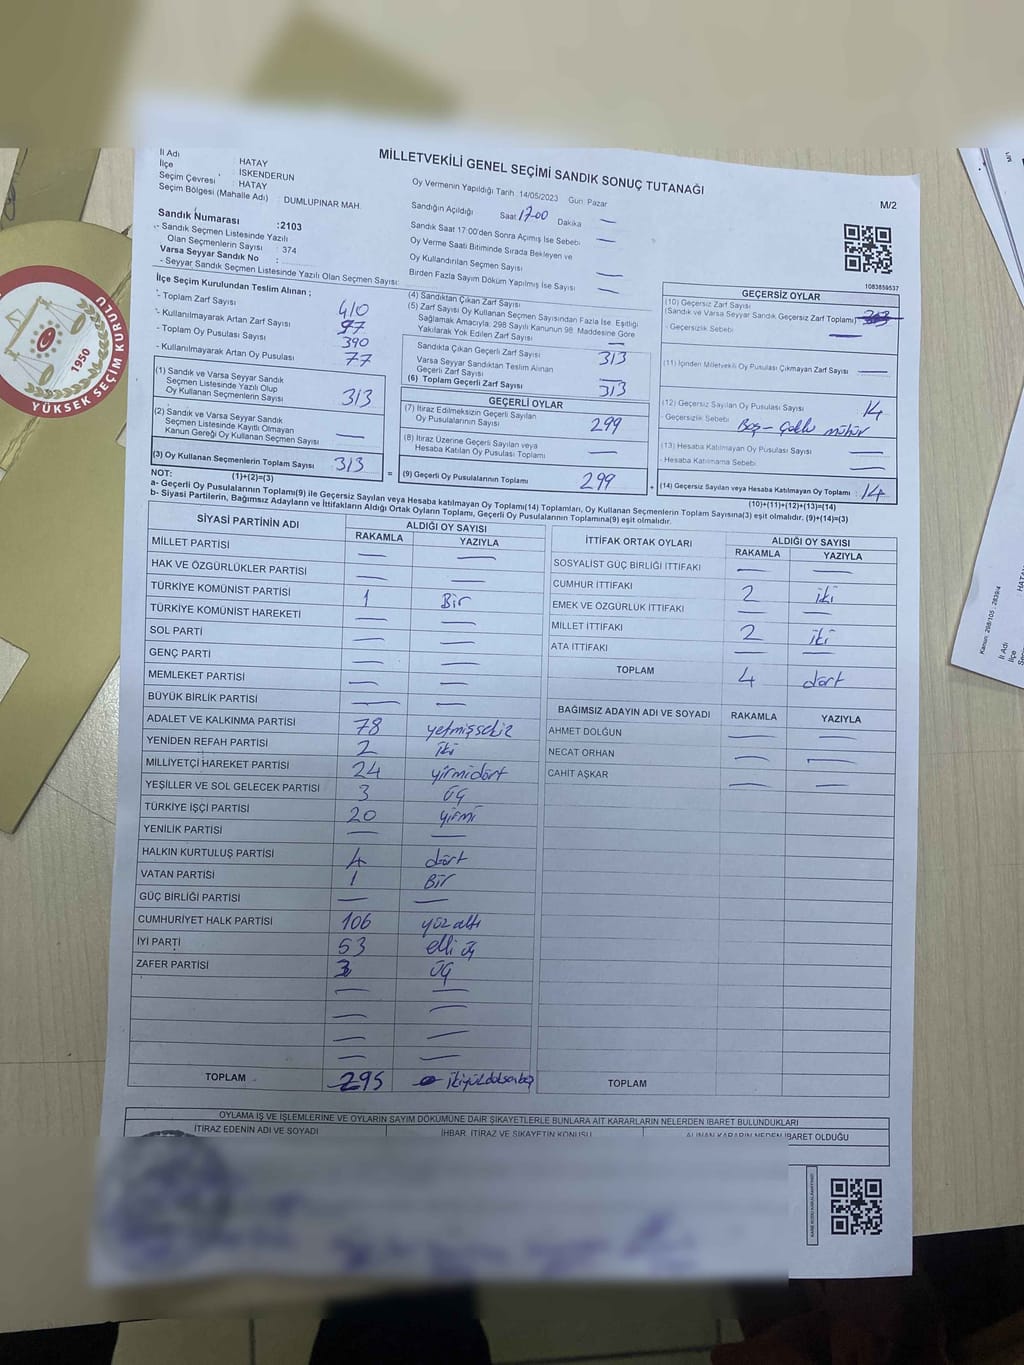 MİLLETVEKİLİ GENEL SEÇİMİ SANDIK SONUÇ TUTANAĞI
M/2
İl Adı : HATAY
İlçe : İSKENDERUN
Seçim Çevresi : HATAY
Seçim Bölgesi (Mahalle Adı) : DUMLUPINAR MAH.
Sandık Numarası :2103
- Sandık Seçmen Listesinde Yazılı
Olan Seçmenlerin Sayısı : 374
Varsa Seyyar Sandık No :
- Seyyar Sandık Seçmen Listesinde Yazılı Olan Seçmen Sayısı:
Oy Vermenin Yapıldığı Tarih: 14/05/2023 Gün: Pazar
Sandığın Açıldığı Saat 17:00 Dakika —
Sandık Saat 17:00'den Sonra Açımış İse Sebebi —
Oy Verme Saati Bitiminde Sırada Bekleyen ve
Oy Kullandırılan Seçmen Sayısı —
Birden Fazla Sayım Döküm Yapılmış İse Sayısı —
1083659537
İlçe Seçim Kurulundan Teslim Alınan ;
- Toplam Zarf Sayısı 410
- Kullanılmayarak Artan Zarf Sayısı 97
- Toplam Oy Pusulası Sayısı 390
- Kullanılmayarak Artan Oy Pusulası 77
(1) Sandık ve Varsa Seyyar Sandık
Seçmen Listesinde Yazılı Olup
Oy Kullanan Seçmenlerin Sayısı 313
(2) Sandık ve Varsa Seyyar Sandık
Seçmen Listesinde Kayıtlı Olmayan
Kanun Gereği Oy Kullanan Seçmen Sayısı —
(3) Oy Kullanan Seçmenlerin Toplam Sayısı 313
(1)+(2)=(3)
(4) Sandıktan Çıkan Zarf Sayısı
(5) Zarf Sayısı Oy Kullanan Seçmen Sayısından Fazla İse, Eşitliği
Sağlamak Amacıyla; 298 Sayılı Kanunun 98. Maddesine Göre
Yakılarak Yok Edilen Zarf Sayısı —
Sandıkta Çıkan Geçerli Zarf Sayısı 313
Varsa Seyyar Sandıktan Teslim Alınan
Geçerli Zarf Sayısı —
(6) Toplam Geçerli Zarf Sayısı 313
GEÇERLİ OYLAR
(7) İtiraz Edilmeksizin Geçerli Sayılan
Oy Pusulalarının Sayısı 299
(8) İtiraz Üzerine Geçerli Sayılan veya
Hesaba Katılan Oy Pusulası Toplamı —
= (9) Geçerli Oy Pusulalarının Toplamı 299 +
GEÇERSİZ OYLAR
(10) Geçersiz Zarf Sayısı
(Sandık ve Varsa Seyyar Sandık Geçersiz Zarf Toplamı)
- Geçersizlik Sebebi —
(11) İçinden Milletvekili Oy Pusulası Çıkmayan Zarf Sayısı —
(12) Geçersiz Sayılan Oy Pusulası Sayısı 14
- Geçersizlik Sebebi Boş - Çoklu mühür
(13) Hesaba Katılmayan Oy Pusulası Sayısı —
- Hesaba Katılmama Sebebi —
(14) Geçersiz Sayılan veya Hesaba Katılmayan Oy Toplamı : 14
(10)+(11)+(12)+(13)=(14)
NOT:
a- Geçerli Oy Pusulalarının Toplamı(9) ile Geçersiz Sayılan veya Hesaba katılmayan Oy Toplamı(14) Toplamları, Oy Kullanan Seçmenlerin Toplam Sayısına(3) eşit olmalıdır. (9)+(14)=(3)
b- Siyasi Partilerin, Bağımsız Adayların ve İttifakların Aldığı Ortak Oyların Toplamı, Geçerli Oy Pusulalarının Toplamına(9) eşit olmalıdır.
SİYASİ PARTİNİN ADI ALDIĞI OY SAYISI
RAKAMLA YAZIYLA
MİLLET PARTİSİ — —
HAK VE ÖZGÜRLÜKLER PARTİSİ — —
TÜRKİYE KOMÜNİST PARTİSİ 1 Bir
TÜRKİYE KOMÜNİST HAREKETİ — —
SOL PARTİ — —
GENÇ PARTİ — —
MEMLEKET PARTİSİ — —
BÜYÜK BİRLİK PARTİSİ — —
ADALET VE KALKINMA PARTİSİ 78 yetmişsekiz
YENİDEN REFAH PARTİSİ 2 iki
MİLLİYETÇİ HAREKET PARTİSİ 24 yirmidört
YEŞİLLER VE SOL GELECEK PARTİSİ 3 üç
TÜRKİYE İŞÇİ PARTİSİ 20 yirmi
YENİLİK PARTİSİ — —
HALKIN KURTULUŞ PARTİSİ 4 dört
VATAN PARTİSİ 1 Bir
GÜÇ BİRLİĞİ PARTİSİ — —
CUMHURİYET HALK PARTİSİ 106 yüzaltı
İYİ PARTİ 53 elli üç
ZAFER PARTİSİ 3 üç
— —
— —
— —
— —
TOPLAM 295 ikiyüzdoksanbeş
İTTİFAK ORTAK OYLARI ALDIĞI OY SAYISI
RAKAMLA YAZIYLA
SOSYALİST GÜÇ BİRLİĞİ İTTİFAKI — —
CUMHUR İTTİFAKI 2 iki
EMEK VE ÖZGÜRLÜK İTTİFAKI — —
MİLLET İTTİFAKI 2 iki
ATA İTTİFAKI — —
TOPLAM 4 dört
BAĞIMSIZ ADAYIN ADI VE SOYADI RAKAMLA YAZIYLA
AHMET DOLĞUN — —
NECAT ORHAN — —
CAHİT AŞKAR — —
TOPLAM
OYLAMA İŞ VE İŞLEMLERİNE VE OYLARIN SAYIM DÖKÜMÜNE DAİR ŞİKAYETLERLE BUNLARA AİT KARARLARIN NELERDEN İBARET BULUNDUKLARI
İTİRAZ EDENİN ADI VE SOYADI İHBAR, İTİRAZ VE ŞİKAYETİN KONUSU ALINAN KARARIN NEDEN İBARET OLDUĞU
YÜKSEK SEÇİM KURULU
1950